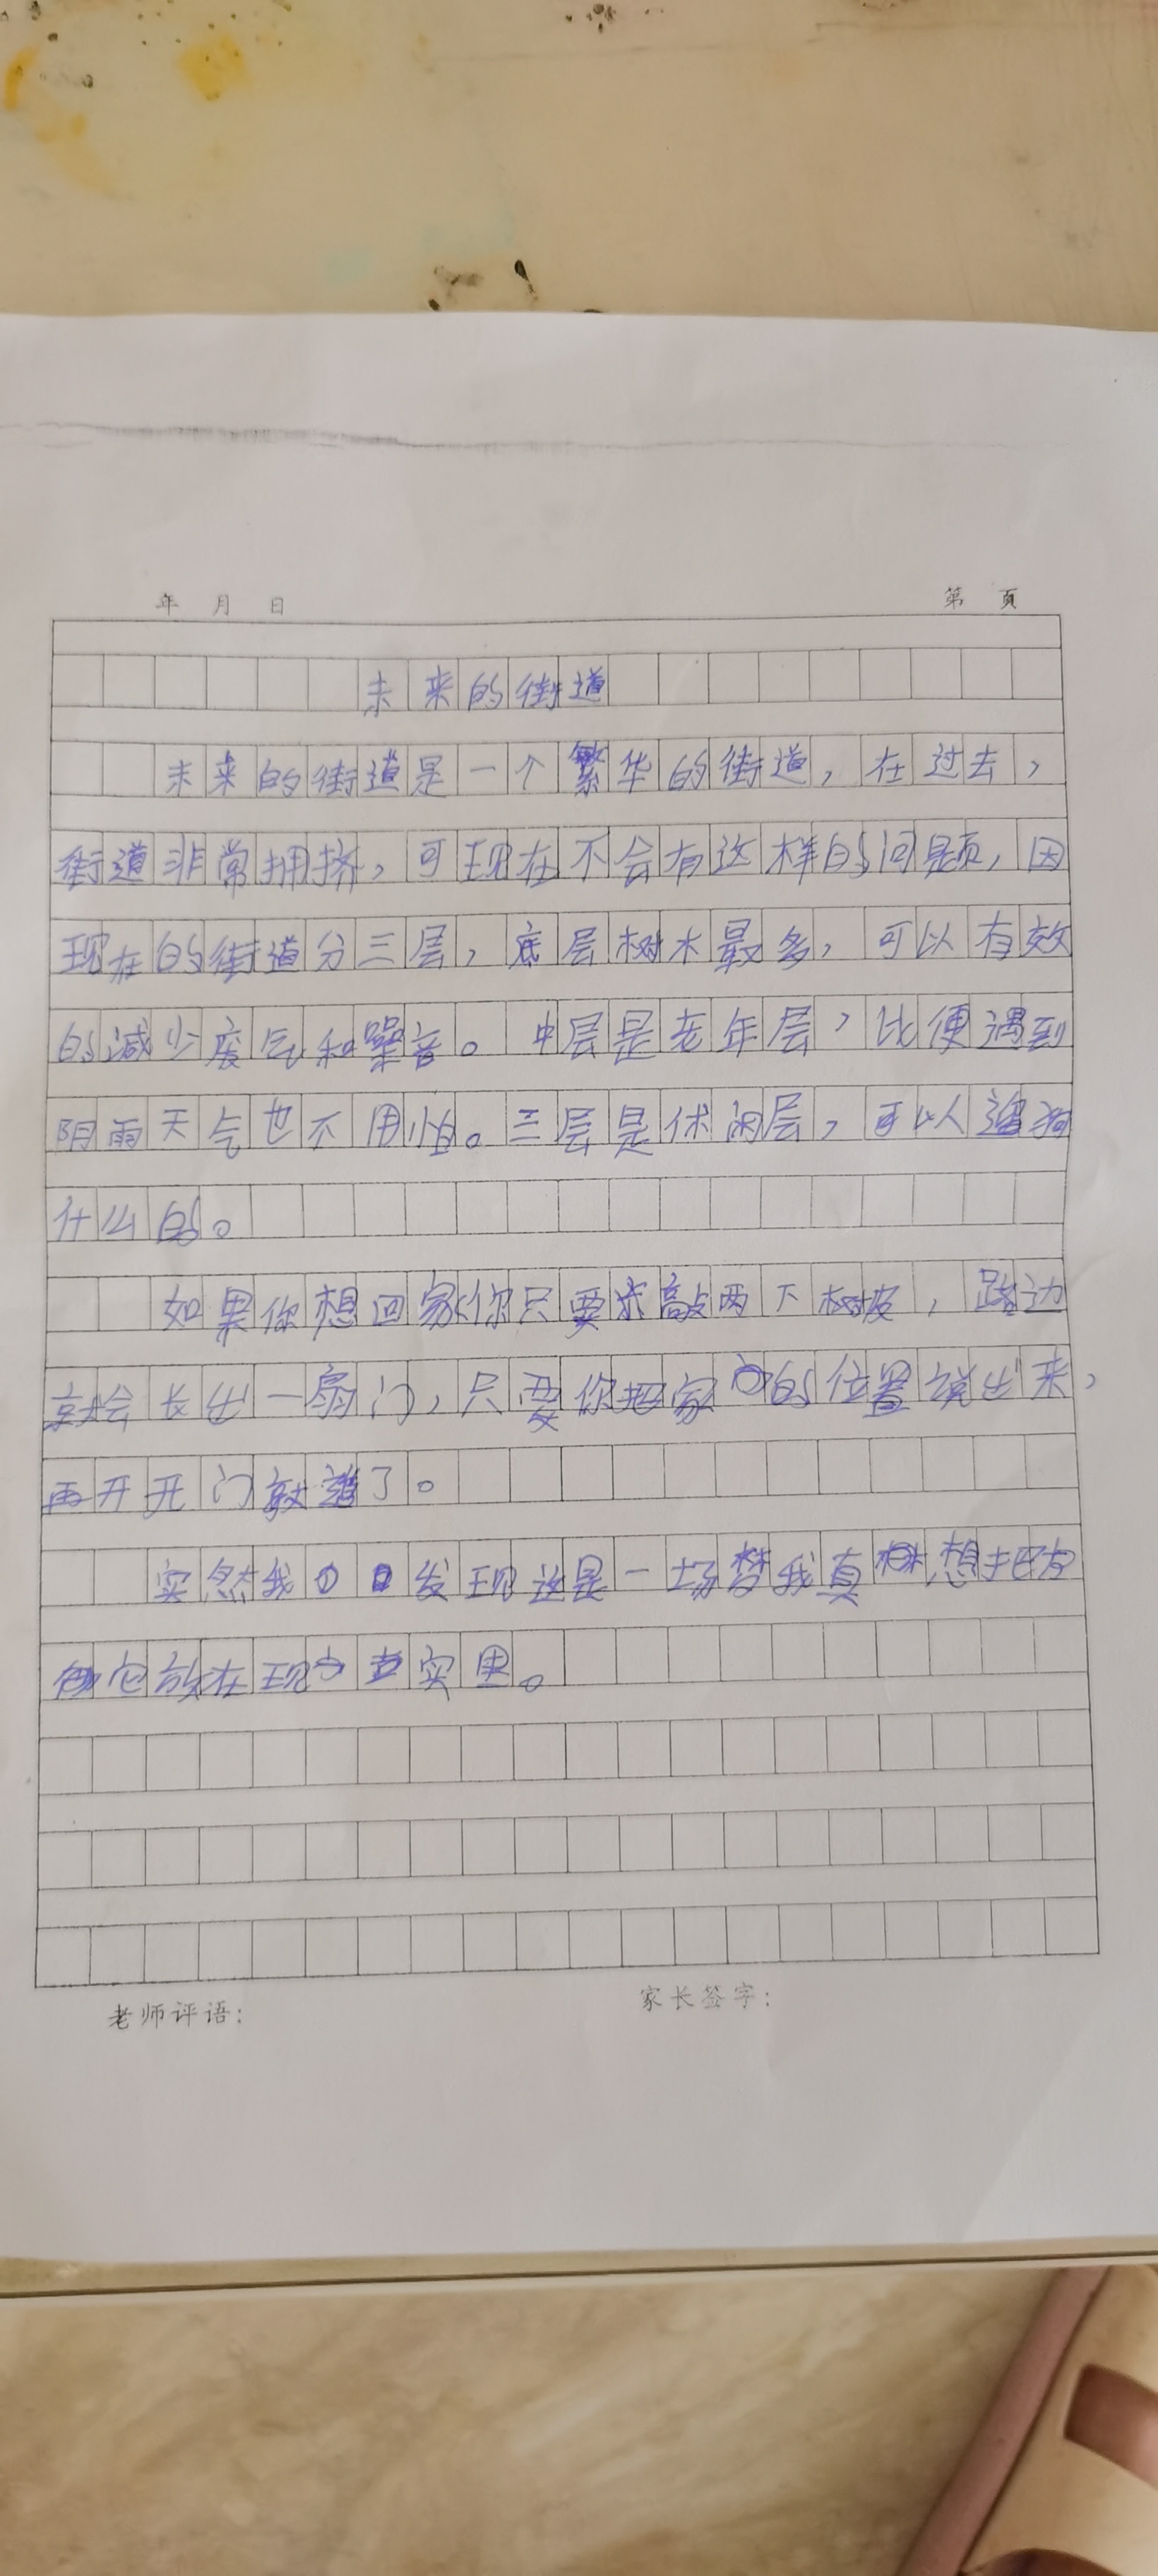 年 月 日
第 页
未来的街道
未来的街道是一个繁华的街道，在过去，
街道非常拥挤，可现在不会有这样的问题，因
现在的街道分三层，底层树木最多，可以有效
的减少废气和噪音。中层是老年层，比便遇到
阴雨天气也不用怕。三层是休闲层，可以遛狗
什么的。
如果你想回家你只要敲两下树皮，路边
就会长出一扇门，只要你把家的位置说出来，
再开开门就
了。
突然我发现这是一场梦我真想把
它放在现实里。
老师评语：
家长签字：